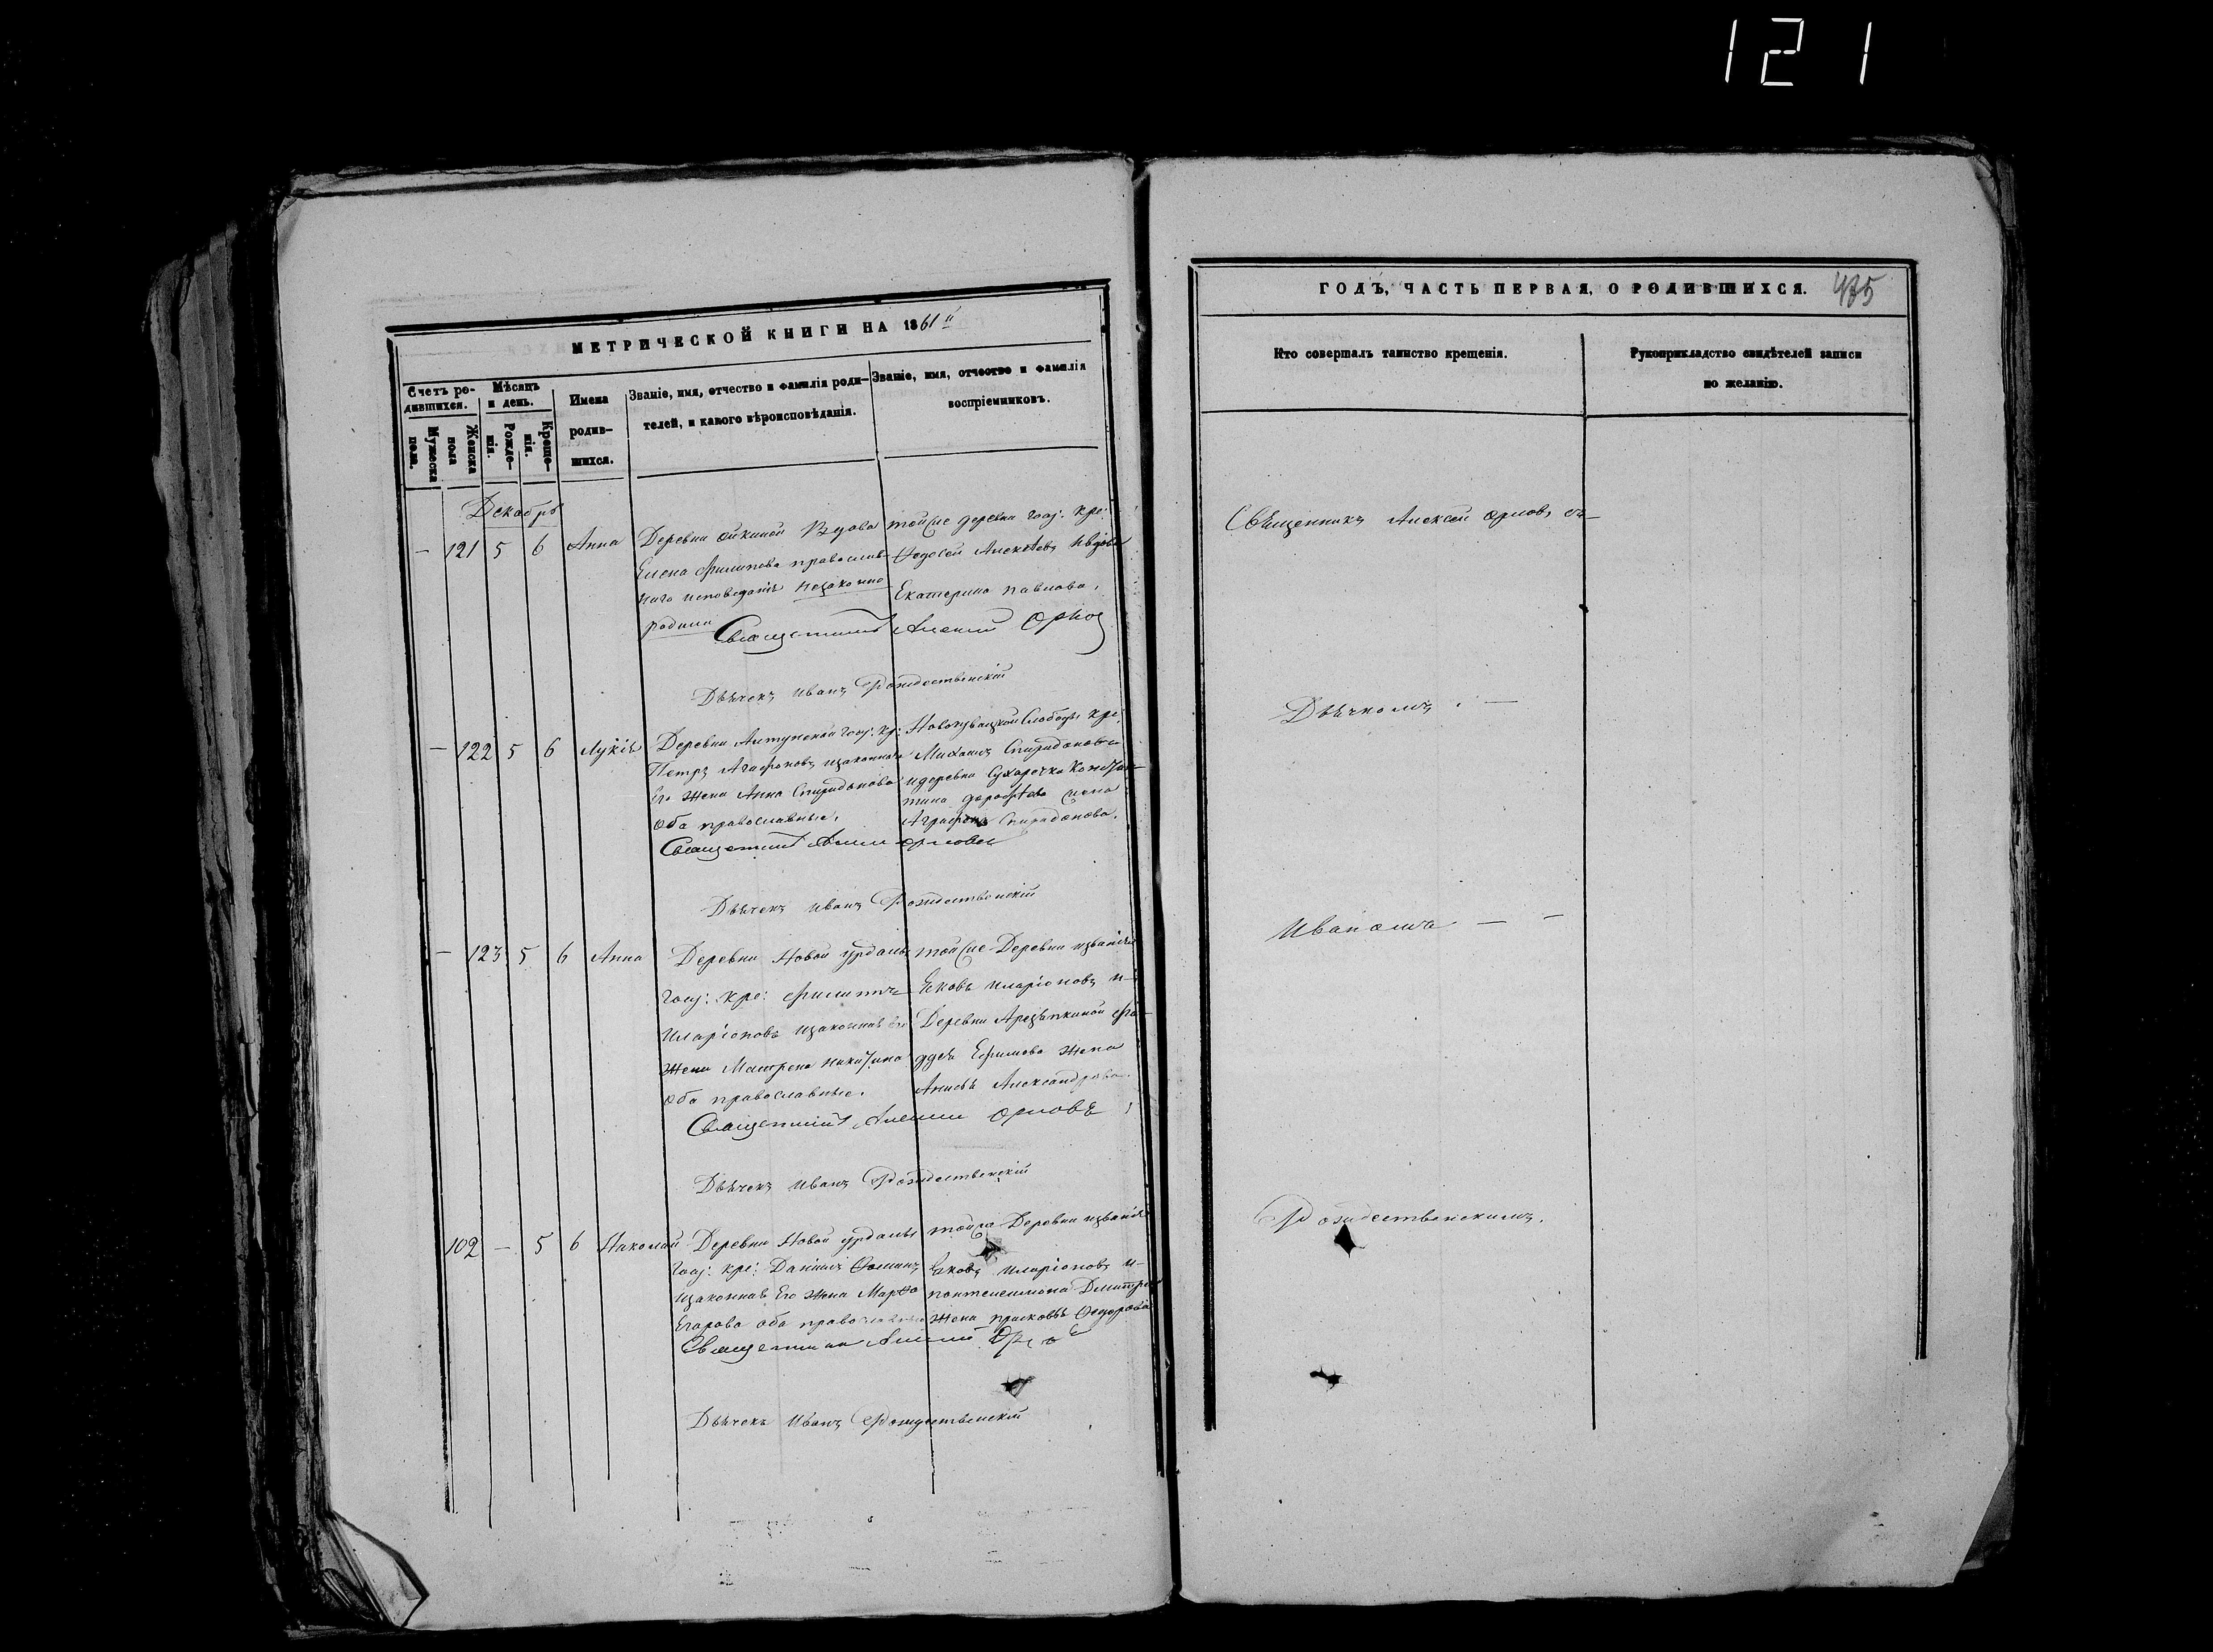 121
МЕТРИЧЕСКОЙ КНИГИ НА 1861й
Счетъ родившихся.
Мѣсяцъ и день.
Имена родившихся.
Званіе, имя, отчество и фамилія родителей, и какого вѣроисповѣданія.
Званіе, имя, отчество и фамилія воспріемниковъ.
Мужеска пола.
Женска пола
Рожденія.
Крещенія.
Декабрь
— 121 5 6 Анна
Деревни Ойкиной Вдова
Елена Филипова православ-
наго исповеданія незаконно
родила
тойже деревни гос: кре:
Федосей Алексѣевъ ивдова
Екатерина Павлова,
Священникъ Алексій Орлов
Дьячекъ Иванъ Рождественскій
— 122 5 6 Лукія
Деревни гос: кр:
Петръ Агафоновъ изаконная
Его жена Анна Спиридонова
оба православные.
Слободы кре:
Михаилъ Спиридоновъ
идеревни Сухоречка Констан-
тина жена
Аграфена Спиридонова.
Священникъ Алексій Орловъ
Дьячекъ Иванъ Рождественскій
— 123 5 6 Анна
Деревни Новой Урдалы
гос: кре: Филиппъ
Иларіоновъ изаконная Его
жена Матрена Никитина
оба православные.
тойже Деревни
Яковъ Иларіоновъ и-
Деревни
Ефимова жена
Анисья Александрова.
Священникъ Алексій Орловъ
Дьячекъ Иванъ Рождественскій
102 — 5 6 Николай
Деревни Новой Урдалы
гос: кре: Даніилъ Фоминъ
изаконная Его жена Марфа
Егорова оба православные
тойже Деревни
Яковъ Иларіоновъ и-
Пантелеимона Дмитріева
жена Прасковья Федорова
Священникъ Алексій Орлов
Дьячекъ Иванъ Рождественскій
ГОДЪ, ЧАСТЬ ПЕРВАЯ, О РОДИВШИХСЯ.
Кто совершалъ таинство крещенія.
Рукоприкладство свидѣтелей записи
по желанію.
Священникъ Алексей Орловъ съ—
Дьячкомъ. —
Иваномъ — —
Рождественскимъ.